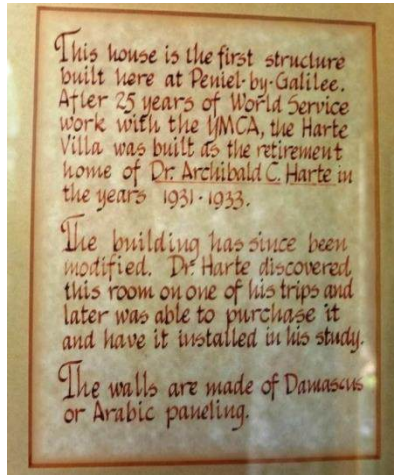 This house is the first structure
built here at Peniel-by-Galilee.
After 25 years of World Service
work with the YMCA, the Harte
Villa was built as the retirement
home of Dr. Archibald C. Harte in
the years 1931-1933.
The building has since been
modified. Dr. Harte discovered
this room on one of his trips and
later was able to purchase it
and have it installed in his study.
The walls are made of Damascus
or Arabic paneling.